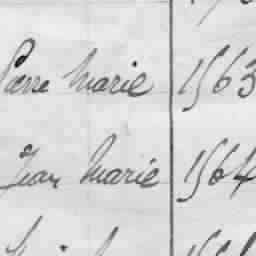 Pierre Marie 1563
Jean Marie 1564